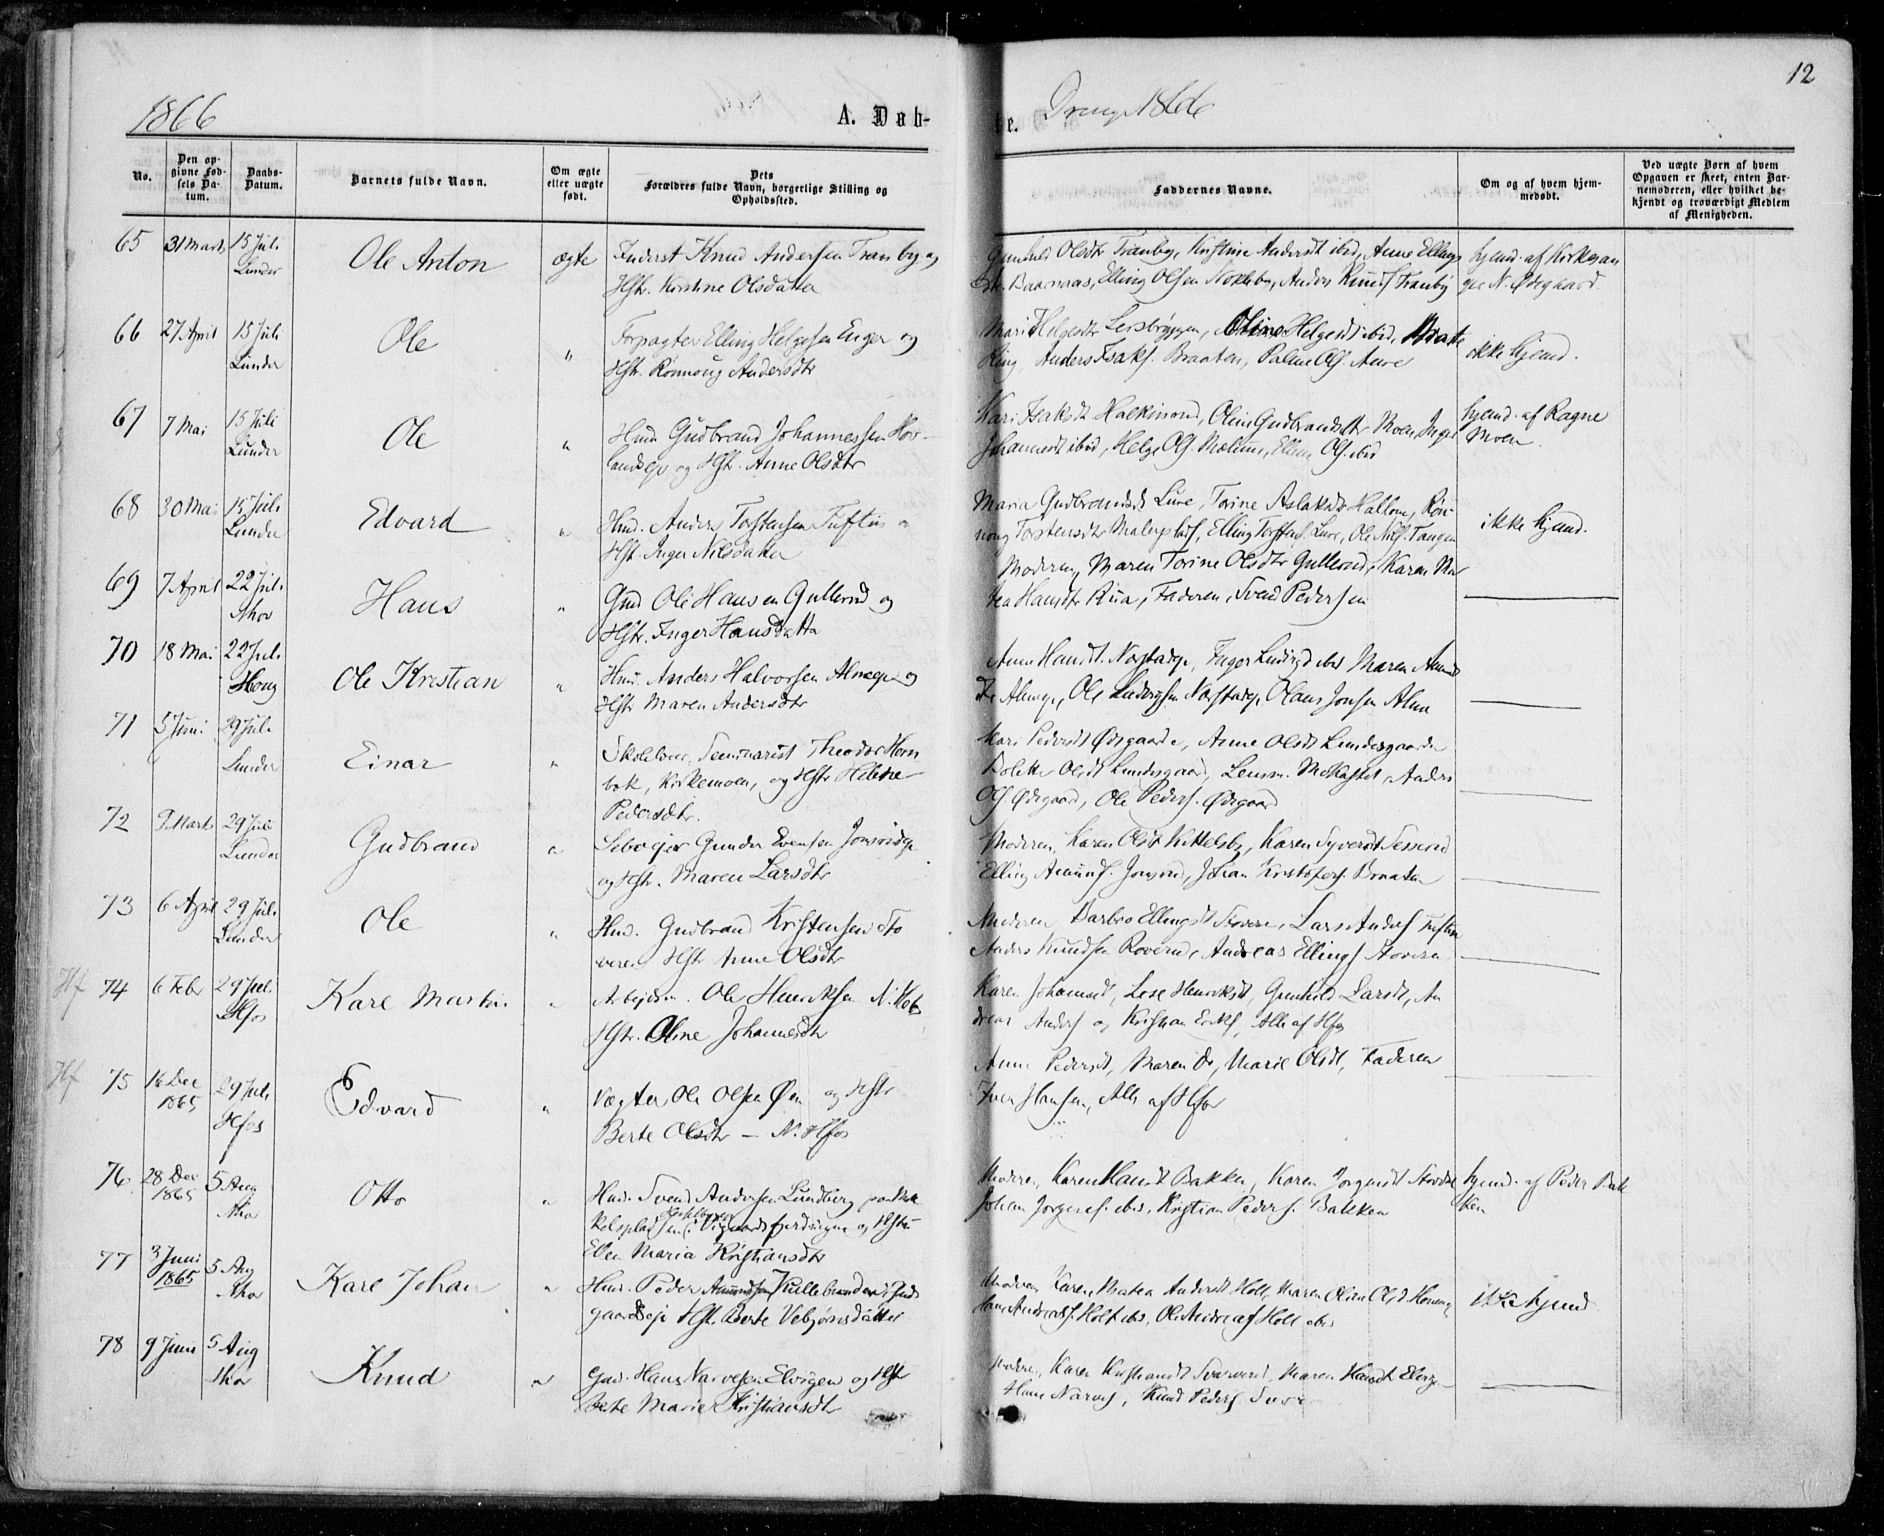 12
1866
A. Døb-
te. Drenge 1866
No.
Den op-
givne Fød-
sels Da-
tum.
Daabs-
Datum.
Barnets fulde Navn.
Om ægte
eller uægte
født.
Dets
Forældres fulde Navn, borgerlige Stilling og
Opholdssted.
Faddernes Navne.
Om og af hvem hjem-
medøbt.
Ved uægte Børn af hvem
Opgaven er skeet, enten Bar-
nemoderen, eller hvilket be-
kjendt og troværdigt Medlem
af Menigheden.
65 31 Marts 15 Juli
Lunder
Ole Anton
ægte
Inderst Knud Andersen Tranby og
Hstr. Kirstine Olsdatter
Gunhild Olsdtr Tranby, Kirstine Andersdt ibid, Anne Ellings
dtr. Baarnaas, Elling Olsen Nokleby, Anders Knuds Tranby
hjemd. af Kirkesan
ger N. Ødegaard.
66 27 April 15 Juli
Lunder
Ole
"
Forpagter Elling Helgesen Enger og
Hstr. Rønnoug Andersdtr
Mari Helgesdtr Lersbryggen, Oline Helgesdt ibid, Beate
Ring, Anders Isaks. Braaten, Palme Ols. Aure
ikke hjemd.
67 7 Mai 15 Juli
Lunder
Ole
"
Hmd. Gudbrand Johannessen Hov-
landseje og Hstr. Anne Olsdtr
Kari Isaksdt Halkinrud, Olin Gudbrandsdatter Moen, Inger
Johannesdt ibid, Helge Ols. Moltmo, Elling Ols. ibid
hjemd. af Ragne
Moen.
68 30 Mai 15 Juli
Lunder
Edvard
"
Hmd. Anders Torstensen Tuftin og
Hstr. Inger Nilsdatter
Maria Gudbrandsdt Lure, Torine Aslaksdt Hallom, Røn-
noug Torstensdtr Malerplads, Elling Torstens. Lure, Ole Nils. Tangen
ikke hjemd.
69 7 April 22 Juli
Aho
Hans
"
Gmd Ole Hansen Gullerud og
Hstr. Inger Hansdatter
Moderen, Maren Torine Olsdtr Gullerud, Karen Ma
tea Hansdtr Rua, Faderen, Svend Pedersen
70 18 Mai 22 Juli
Houg
Ole Kristian
"
Hmd. Anders Halvorsen Almeje og
Hstr Maren Andersdtr
Anne Hansdt. Norstadeje, Inger Ludvigsd ibid Maren Amund
dtr Almeje, Ole Ludvigsen Norstadeje, Olaus Jonsen Alme
71 5 Juni 29 Juli
Lunder
Einar
"
Skolelærer, Seminarist Theodor Horn
bæk, Kirkemoen, og Hstr Helene
Pedersdtr.
Kari Pedersdt Ødegaard, Anne Olsdt Lundesgaarden
Bolette Olsdt Lundesgaard, Lensm. Mokastet, Anders
Ols Ødegaard, Ole Peders. Ødegaard
72 7 Marts 29 Juli
Lunder
Gudbrand
"
Selvejer Gunder Evensen Jonsrudeje
og Hstr. Maren Larsdtr
Moderen, Karen Olsdt Kittelsby, Karen Syversdt Sesserud
Elling Amunds. Jonsrud, Johan Kristofers. Braaten
73 6 April 29 Juli
Lunder
Ole
"
Hmd. Gudbrand Kristensen Sto
veren Hstr Anne Olsdtr
Moderen Barbro Ellingsdt Stovere, Lars Anders Tuftin
Anders Knudsen Roverud, Andreas Ellings Stoveren
Hf 74 6 Febr 29 Jul.
Hfos
Karl Martin
"
Arbejdsm. Ole Henriksen N. Hofs
Hstr. Oline Johannesdtr
Karen Johannesdt, Lise Henriksdt, Gunhild Larsdt, An
dreas Anders og Kristian Eriks, Alle af Hfos
Hf 75 16 Dec
1865 29 Juli
Hfos
Edvard
"
Vægter Ole Olsen Øen og Hstr
Berte Olsdtr — N. Hfos
Anne Pedersdt, Maren Do, Marie Olsdt, Faderen
Iver Hansen, Alle af Hfos
76 28 Dec
1865 5 Aug
Aho
Otto
"
Hmd. Svend Andersen Lundberg paa Ma
kelspladsen i Viguardsfjerdingen og Hstr
Ellen Maria Kristiansdtr
Modre, Karen Hansdt Bakken, Karen Jørgensdt
Johan Jørgens. ibid, Kristian Peders. Bakken
hjemd. af Peder Bak
ken
77 3 Juni
1865 5 Aug
Aho
Karl Johan
"
Hmd. Peder Amundsen Kullebunden i
gaardseje Hst. Berte Vebjørnsdatter
Modren Karen Matea Andersdt Holte, Maren Oline Olsd
Hans Andreas. Holt ibid, Ole Andreas. Holt ibid
ikke hjemd
78 9 Juni 5 Aug
Aho
Knud
"
Gmd. Hans Narvesen Elvigen og Hstr
Berte Marie Kristiansdtr
Modre, Karen Kristiansdt, Maren Hansdt Elvigen
Hans Narves, Knud Peders